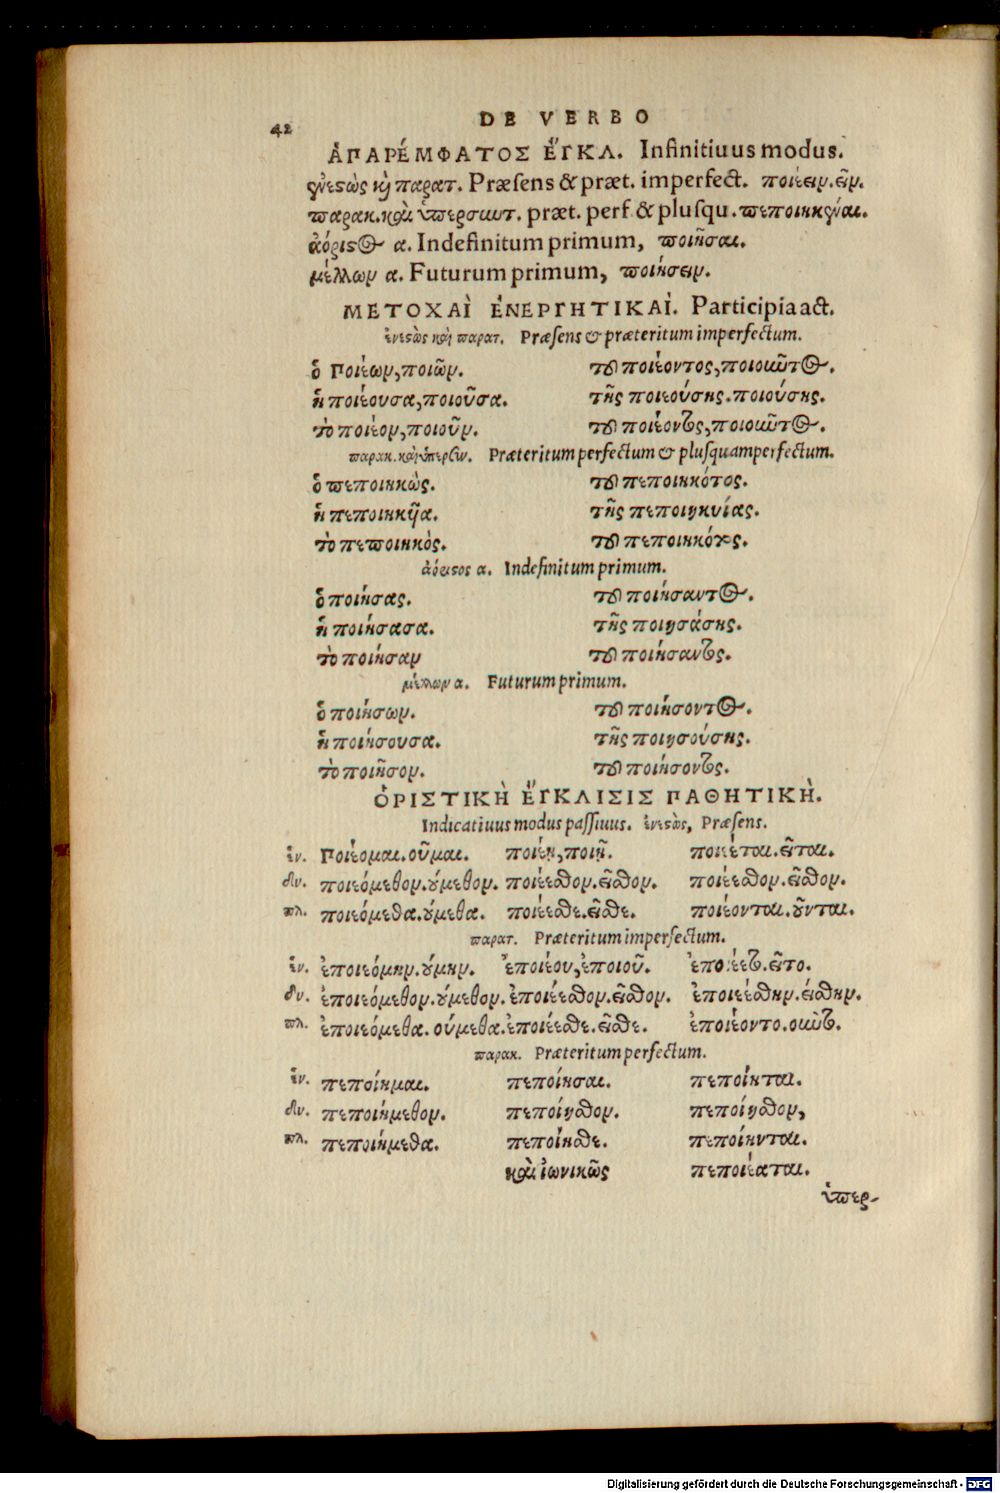 42
DE VERBO
ἈΠΑΡΈΜΦΑΤΟΣ ἜΓΚΛ. Infinitiuus modus.
ἐνεστὼς καὶ παρατ. Præsens & præt. imperfect. ποιέειν.εῖν.
παρακ.καὶ ὑπερσυντ. præt. perf & plusqu.πεποιηκέναι.
ἀόριστος α. Indefinitum primum, ποιῆσαι.
μέλλων α. Futurum primum, ποιήσειν.
ΜΕΤΟΧΑῚ ἘΝΕΡΓΗΤΙΚΑΊ. Participia act.
ἐνεστὼς καὶ παρατ. Præsens & præteritum imperfectum.
ὁ Ποιέων,ποιῶν. τοῦ ποιέοντος,ποιοῦντος.
ἡ ποιέουσα,ποιοῦσα. τῆς ποιεούσης.ποιούσης.
τὸ ποιέον,ποιοῦν. τοῦ ποιέοντος,ποιοῦντος.
παρακ.καὶ ὑπερσυν. Præteritum perfectum & plusquamperfectum.
ὁ πεποιηκὼς. τοῦ πεποιηκότος.
ἡ πεποιηκῦα. τῆς πεποιηκυίας.
τὸ πεποιηκὸς. τοῦ πεποιηκότος.
ἀόριστος α. Indefinitum primum.
ὁ ποιήσας. τοῦ ποιήσαντος.
ἡ ποιήσασα. τῆς ποιησάσης.
τὸ ποιήσαν τοῦ ποιήσαντος.
μέλλων α. Futurum primum.
ὁ ποιήσων. τοῦ ποιήσοντος.
ἡ ποιήσουσα. τῆς ποιησούσης.
τὸ ποιῆσον. τοῦ ποιήσοντος.
ὉΡΙΣΤΙΚῊ ἜΓΚΛΙΣΙΣ ΠΑΘΗΤΙΚῊ.
Indicatiuus modus passiuus. ἐνεστὼς, Præsens.
ἑν. Ποιέομαι.οῦμαι. ποιέῃ,ποιῇ. ποιέεται.εῖται.
δυ. ποιεόμεθον.ούμεθον. ποιέεσθον.εῖσθον. ποιέεσθον.εῖσθον.
πλ. ποιεόμεθα.ούμεθα. ποιέεσθε.εῖσθε. ποιέονται.οῦνται.
παρατ. Præteritum imperfectum.
ἑν. ἐποιεόμην.ούμην. ἐποιέου,ἐποιοῦ. ἐποιέετο.εῖτο.
δυ. ἐποιεόμεθον.ούμεθον. ἐποιέεσθον.εῖσθον. ἐποιεέσθην.είσθην.
πλ. ἐποιεόμεθα.ούμεθα. ἐποιέεσθε.εῖσθε. ἐποιέοντο.οῦντο.
παρακ. Præteritum perfectum.
ἑν. πεποίημαι. πεποίησαι. πεποίηται.
δυ. πεποιήμεθον. πεποίησθον. πεποίησθον,
πλ. πεποιήμεθα. πεποίησθε. πεποίηνται.
καὶ ἰωνικῶς πεποιέαται.
ὑπερ-
Digitalisierung gefördert durch die Deutsche Forschungsgemeinschaft - DFG